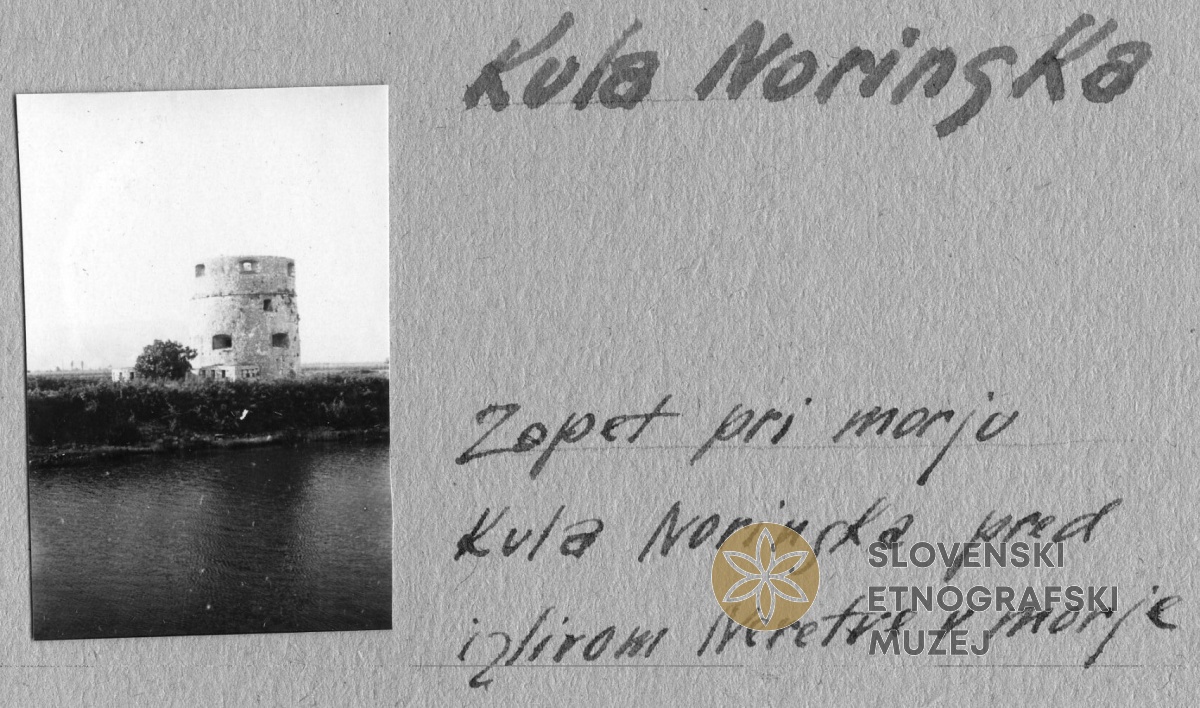 Kula Noringka
Zopet pri morju
Kula Noringka pred
izlivom Neretve v morje
SLOVENSKI
ETNOGRAFSKI
MUZEJ